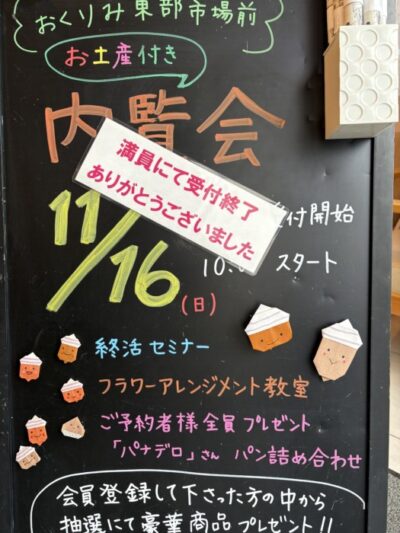 おくりみ東部市場前
お土産付き
内覧会
満員にて受付終了
ありがとうございました
11/16
(日)
付開始
10: スタート
終活セミナー
フラワーアレンジメント教室
ご予約者様全員プレゼント
「パナデロ」さん パン詰め合わせ
会員登録して下さった方の中から
抽選にて豪華商品プレゼント!!